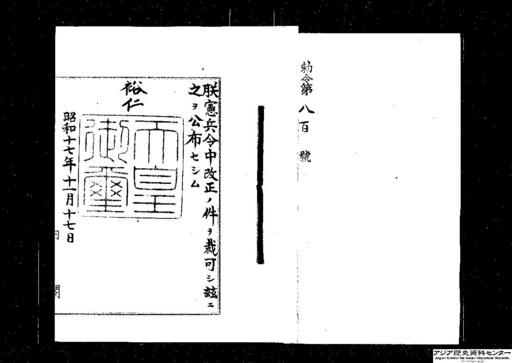 勅令第八百號
朕憲兵令中改正ノ件ヲ裁可シ玆ニ
之ヲ公布セシム
裕仁
天皇御璽
昭和十七年十一月十七日
アジア歴史資料センター
Japan Center for Asian Historical Records